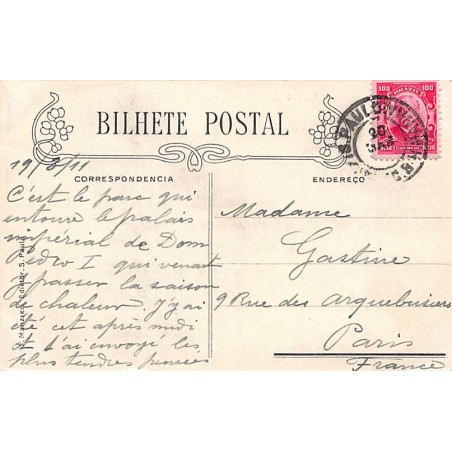 100 BRAZIL 100
S. PAULO
20
BILHETE POSTAL
19/3/11
CORRESPONDENCIA
ENDEREÇO
C'est le parc qui
entoure le palais
impérial de Dom
Pedro I qui venait
y passer la saison
de chaleur. J'y ai
été cet après midi
et t'ai envoyé les
plus tendres pensées
Madame
Gastine
9 Rue des Arquebusiers
Paris
France
Editor, S. Paulo